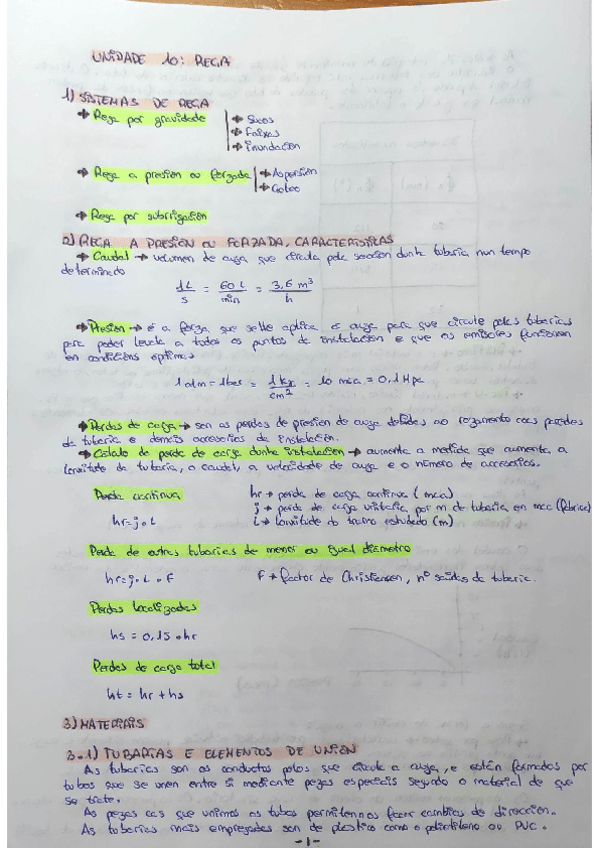 UNIDADE 10: REGA
1) SISTEMAS DE REGA
→ Rega por gravidade → Sucos
→ Faixas
→ Inundacion
→ Rega a presion ou forzada → Aspersion
→ Goteo
→ Rega por subirrigacion
2) REGA A PRESION OU FORZADA, CARACTERISTICAS
→ Caudal → volumen de auga que circula pola seccion dunha tuberia nun tempo
determinado
1L/s = 60L/min = 3,6 m³/h
→ Presion → é a forza que se lle aplica á auga para que circule polas tuberias
para poder levala a todos os puntos da instalacion e que os emisores funcionen
en condicións optimas
1 atm = 1 bar = 1 kg/cm² = 10 mca = 0,1 Mpa
→ Perdas de carga → son as perdas de presion da auga debidas ao rozamento coas paredes
da tuberia e demais accesorios da instalación.
→ Calculo de perda de carga dunha instalacion → aumenta a medida que aumenta a
lonxitude da tuberia, o caudal, a velocidade da auga e o número de accesorios.
Perda continua hr → perda de carga continua (mca)
j → perda de carga unitaria por m de tuberia en mca (fabrica)
hr = j · L L → lonxitude do tramo estudado (m)
Perda de outras tubarias de menor ou igual diametro
hr = j · L · F F → factor de Christiansen, nº saidas da tuberia.
Perdas localizadas
hs = 0,15 · hr
Perdas de carga total
ht = hr + hs
3) MATERIAIS
3.1) TUBARIAS E ELEMENTOS DE UNION
As tubarias son os conductos polos que circula a auga, e están formados por
tubos que se unen entre si mediante pezas especiais segundo o material de que
se trate.
As pezas cas que unimos os tubos permitennos facer cambios de direccion.
As tobarias mais empregadas son de plastico como o polietileno ou PVC.
-1-